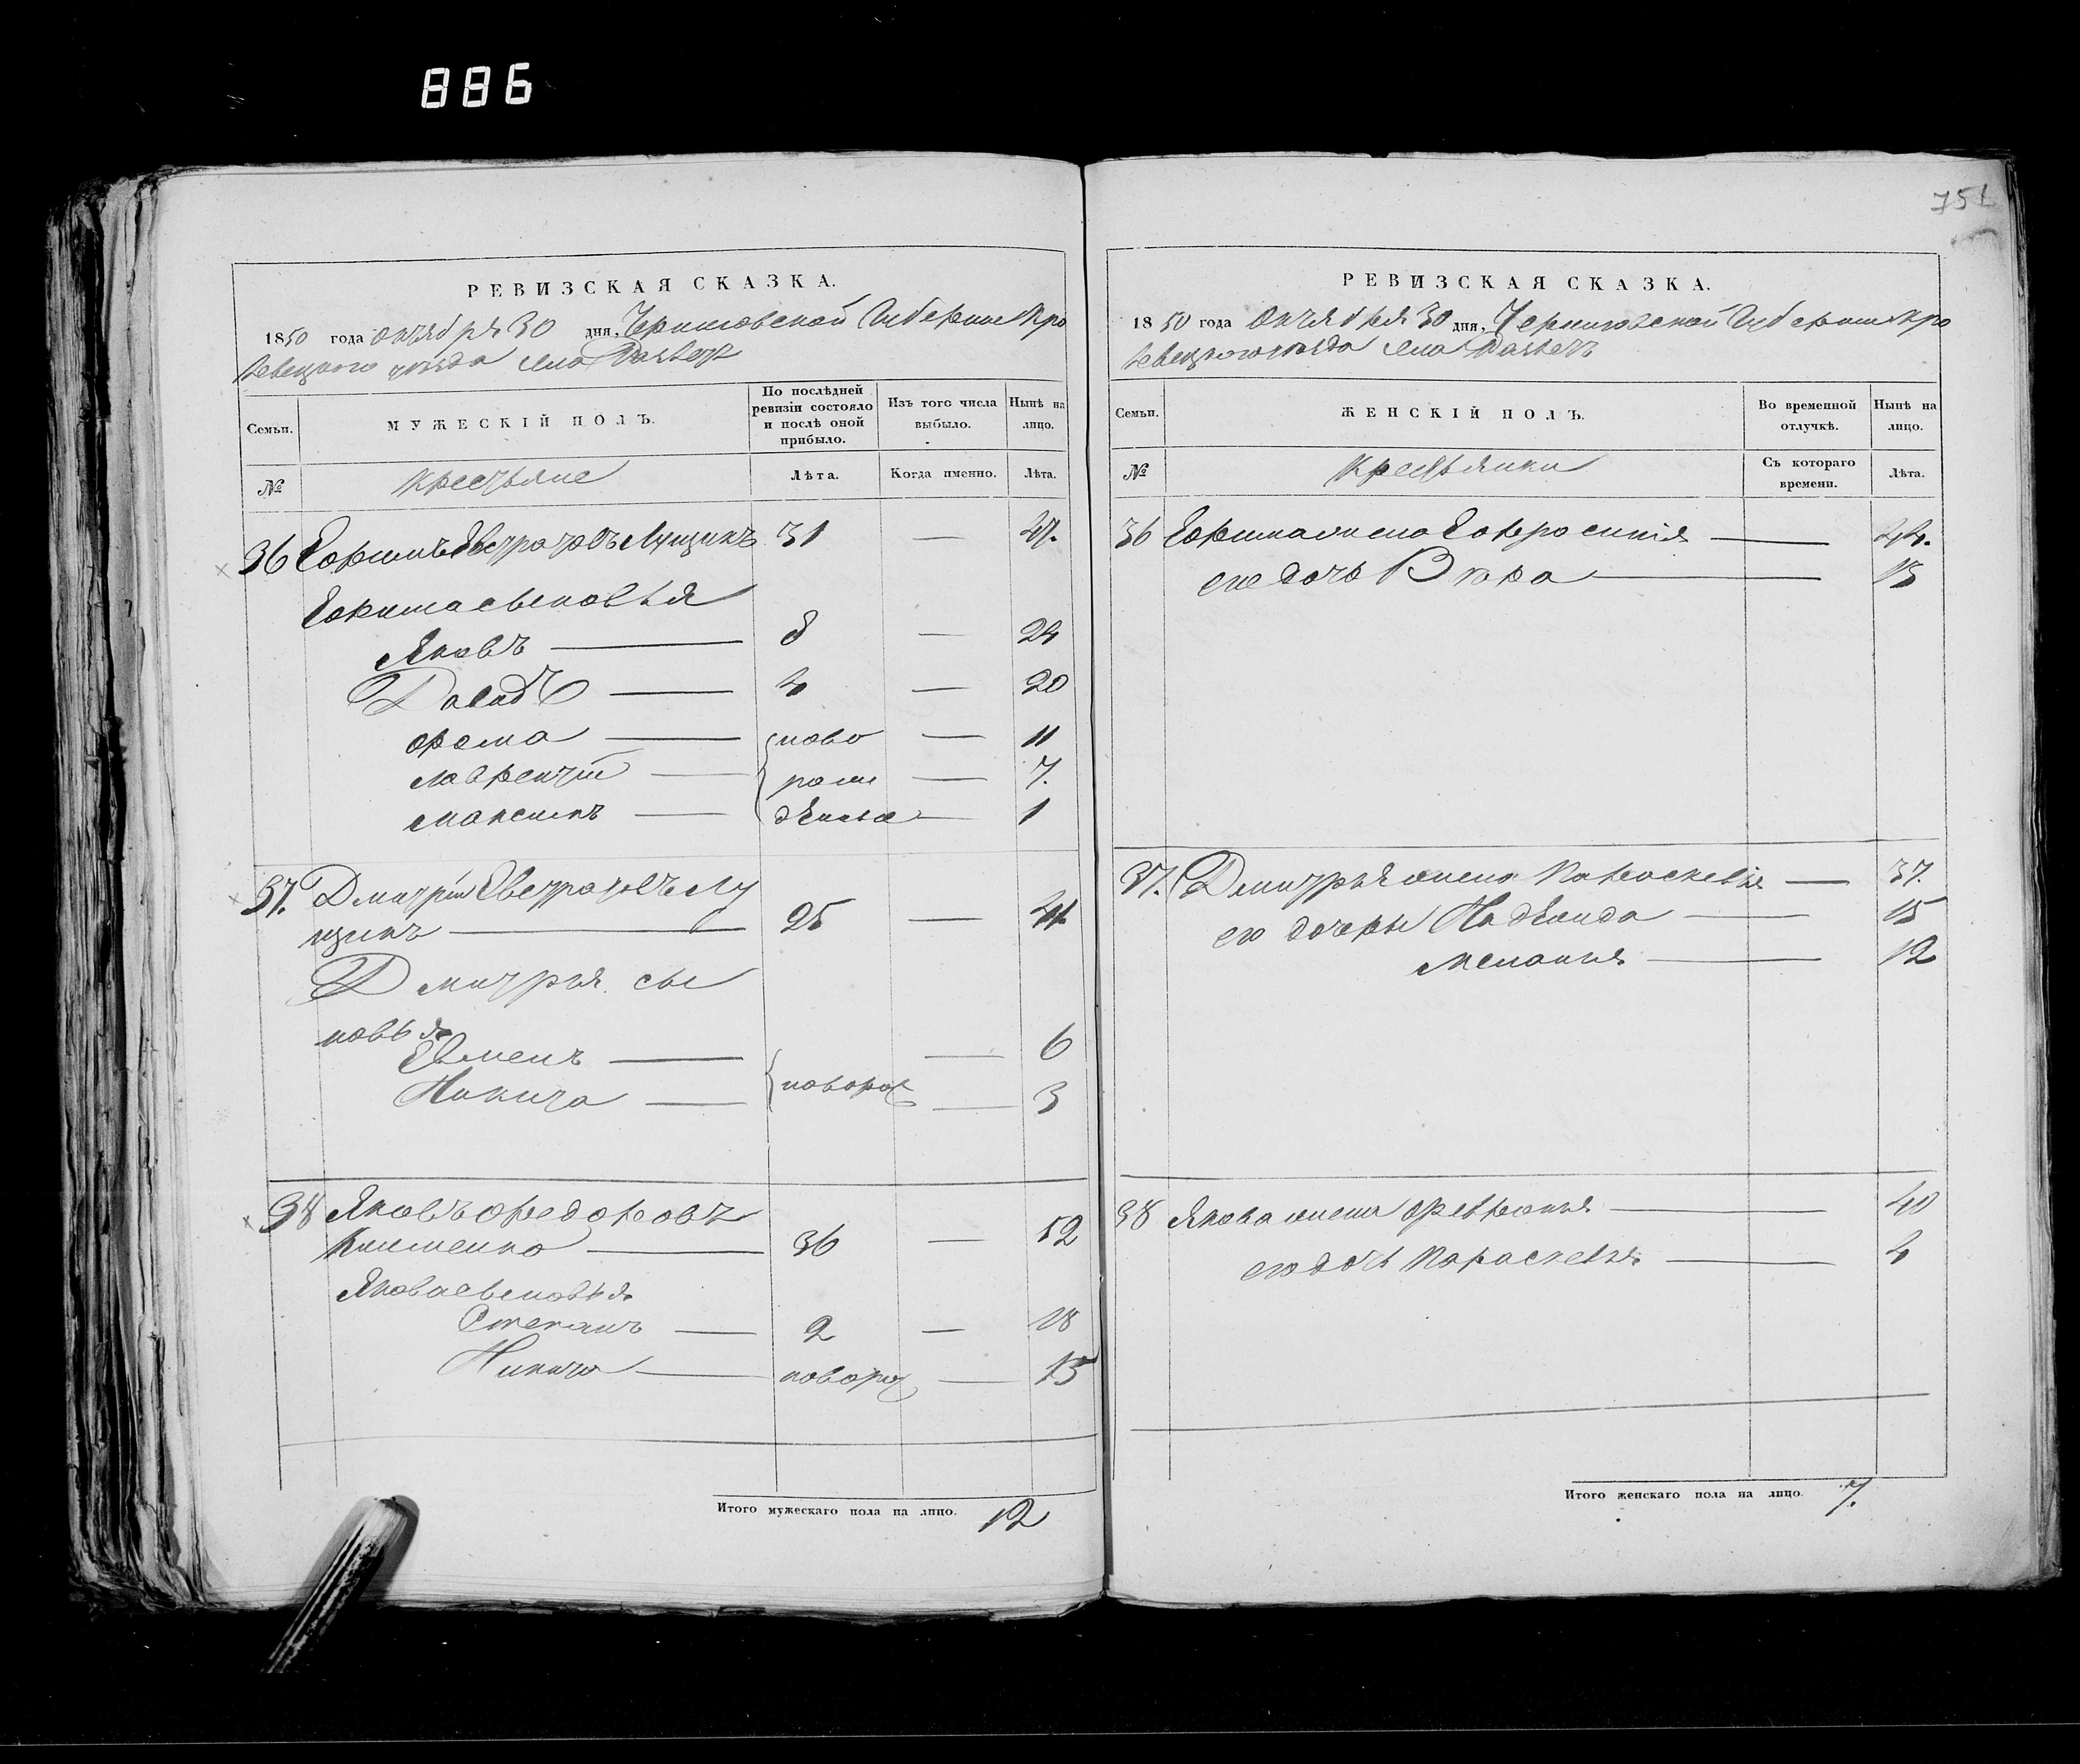 886
751
РЕВИЗСКАЯ СКАЗКА.
1850 года октября 30 дня, Черниговской Губернии Кро
левецкого уезда села
Семьи.
МУЖЕСКІЙ ПОЛЪ.
По послѣдней ревизіи состояло и послѣ оной прибыло.
Изъ того числа выбыло.
Нынѣ на лицо.
№
крестьяне
Лѣта.
Когда именно.
Лѣта.
36 Ефимъ Евстратовъ Лущикъ 31 — 47.
Ефима сыновья
Яковъ — 8 — 24
Давидъ — 4 — 20
Фома — ново — 11
Лаврентій — рож — 7.
Максимъ — — 1
37. Дмитрій Евстратовъ Лу
щикъ — 25 — 41
Дмитрія сы
новья
Евменъ — — 6
Никита — новорож — 3
38 Яковъ Федоровъ
Клименко — 36 — 52
Якова сыновья
Степанъ — 2 — 18
Никита — новорож — 15
Итого мужескаго пола на лицо. 12
РЕВИЗСКАЯ СКАЗКА.
1850 года октября 30 дня, Черниговской Губернии Кро
левецкого уезда села
Семьи.
ЖЕНСКІЙ ПОЛЪ.
Во временной отлучкѣ.
Нынѣ на лицо.
№
крестьянки
Съ котораго времени.
Лѣта.
36 Ефима жена Ефросинія — 44.
его дочь Вѣра — 13
37. Дмитрія жена Параскевія — 37.
его дочери Надежда — 15
Меланія — 12
38 Якова жена Февронія — 40
его дочь Параскевія — 4
Итого женскаго пола на лицо. 7.